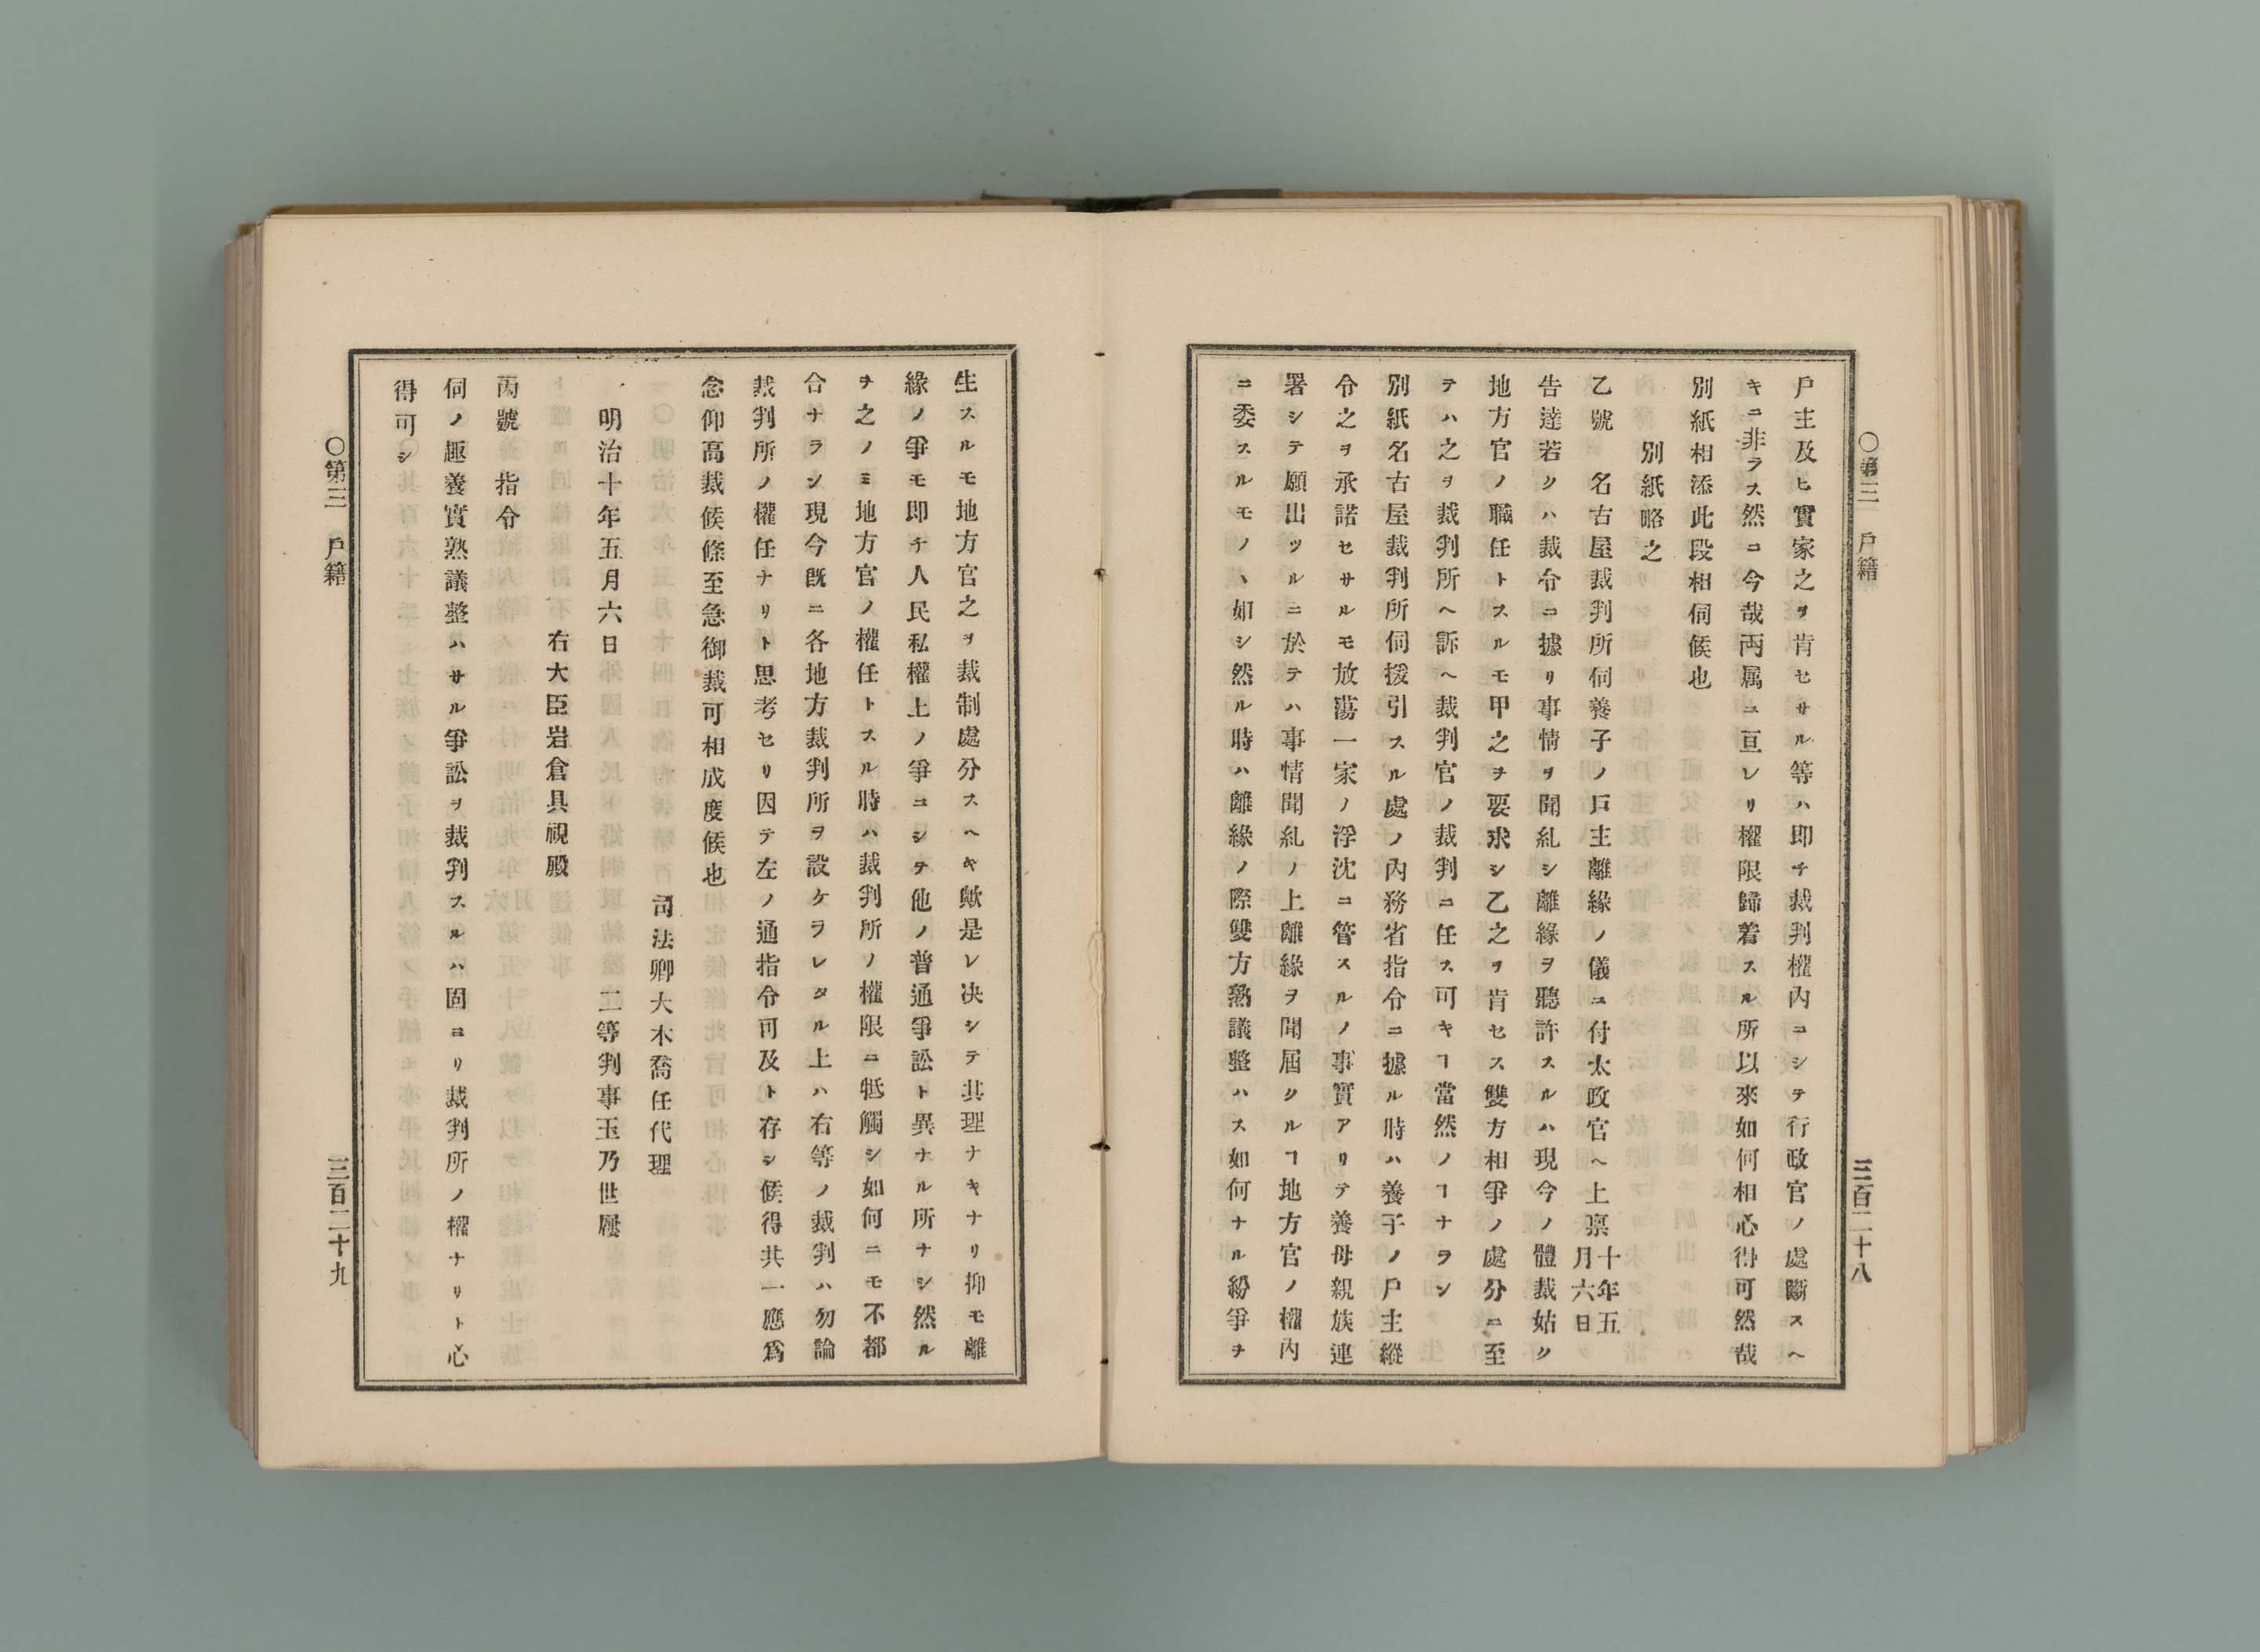 ○第三 戶籍 三百二十八
戶主及ヒ實家之ヲ肯セサル等ハ即チ裁判權內ニシテ行政官ノ處斷スヘ
キニ非ラス然ニ今哉両属ニ亘レリ權限歸着スル所以來如何相心得可然哉
別紙相添此段相伺候也
別紙略之
乙號 名古屋裁判所伺養子ノ戶主離緣ノ儀ニ付太政官ヘ上禀十年五月六日
告達若クハ裁令ニ據リ事情ヲ聞糺シ離緣ヲ聽許スルハ現今ノ體裁姑ク
地方官ノ職任トスルモ甲之ヲ要求シ乙之ヲ肯セス雙方相爭ノ處分ニ至
テハ之ヲ裁判所ヘ訴ヘ裁判官ノ裁判ニ任ス可キヿ當然ノヿナラン
別紙名古屋裁判所伺援引スル處ノ內務省指令ニ據ル時ハ養子ノ戶主縱
令之ヲ承諾セサルモ放蕩一家ノ浮沈ニ管スルノ事實アリテ養母親族連
署シテ願出ツルニ於テハ事情聞糺ノ上離緣ヲ聞屆クルヿ地方官ノ權內
ニ委スルモノヽ如シ然ル時ハ離緣ノ際雙方熟議整ハス如何ナル紛爭ヲ
生スルモ地方官之ヲ裁制處分スヘキ歟是レ决シテ其理ナキナリ抑モ離
緣ノ爭モ即チ人民私權上ノ爭ニシテ他ノ普通爭訟ト異ナル所ナシ然ル
ヲ之ノミ地方官ノ權任トスル時ハ裁判所ノ權限ニ牴觸シ如何ニモ不都
合ナラン現今既ニ各地方裁判所ヲ設ケヲレタル上ハ右等ノ裁判ハ勿論
裁判所ノ權任ナリト思考セリ因テ左ノ通指令可及ト存シ候得共一應爲
念仰高裁候條至急御裁可相成度候也
司法卿大木喬任代理
明治十年五月六日 二等判事玉乃世履
右大臣岩倉具視殿
丙號 指令
伺ノ趣養實熟議整ハサル爭訟ヲ裁判スルハ固ヨリ裁判所ノ權ナリト心
得可シ
○第三 戶籍 三百二十九